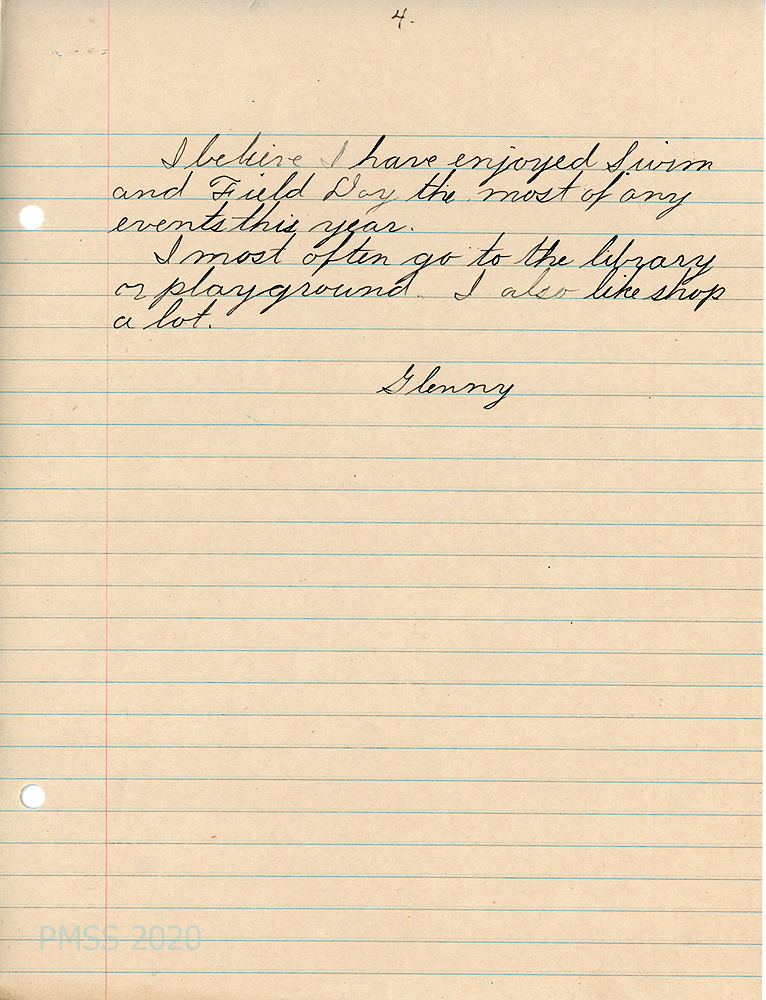 4.
I believe I have enjoyed Swim
and Field Day the most of any
events this year.
I most often go to the library
or playground. I also like shop
a lot.
Glenny
PMSS 2020